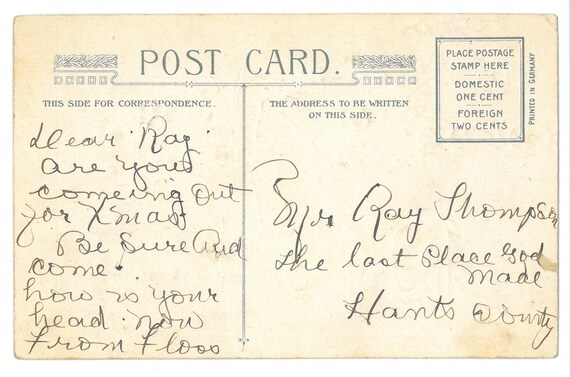 POST CARD.
THIS SIDE FOR CORRESPONDENCE.
THE ADDRESS TO BE WRITTEN
ON THIS SIDE.
PLACE POSTAGE
STAMP HERE
DOMESTIC
ONE CENT
FOREIGN
TWO CENTS
PRINTED IN GERMANY
Dear Ray
are yous
comeing Out
for Xmas
Be Sure And
come.
how is your
head. now
From Floss
Mr Ray Thompson
the last Place God
made
Hants County